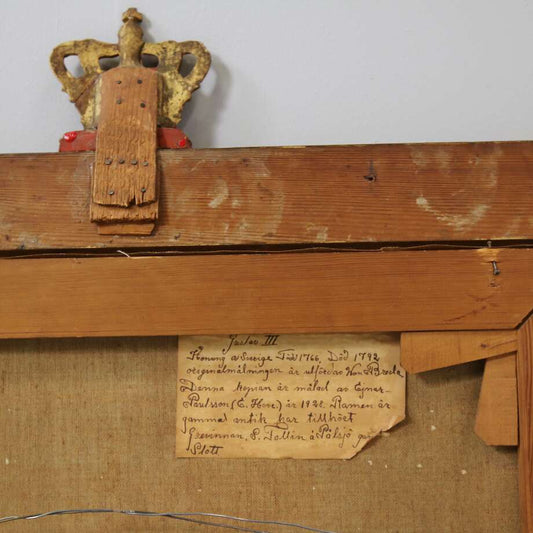 Gustav III
Konung av Sverige Född 1766. Död 1792
originalmålningen är utförd av Kon. P. Breda
Denna kopian är målad av Ejnar-
Paulsson (E. ) år 1928. Ramen är
gammal antik har tillhört
Grevinnan, P. Tollin å Pålsjö
Slott